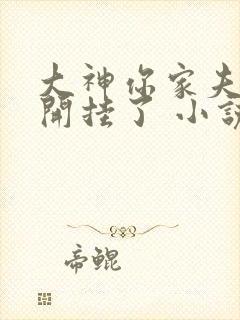 大神你家夫
開挂了 小說
帝鯤